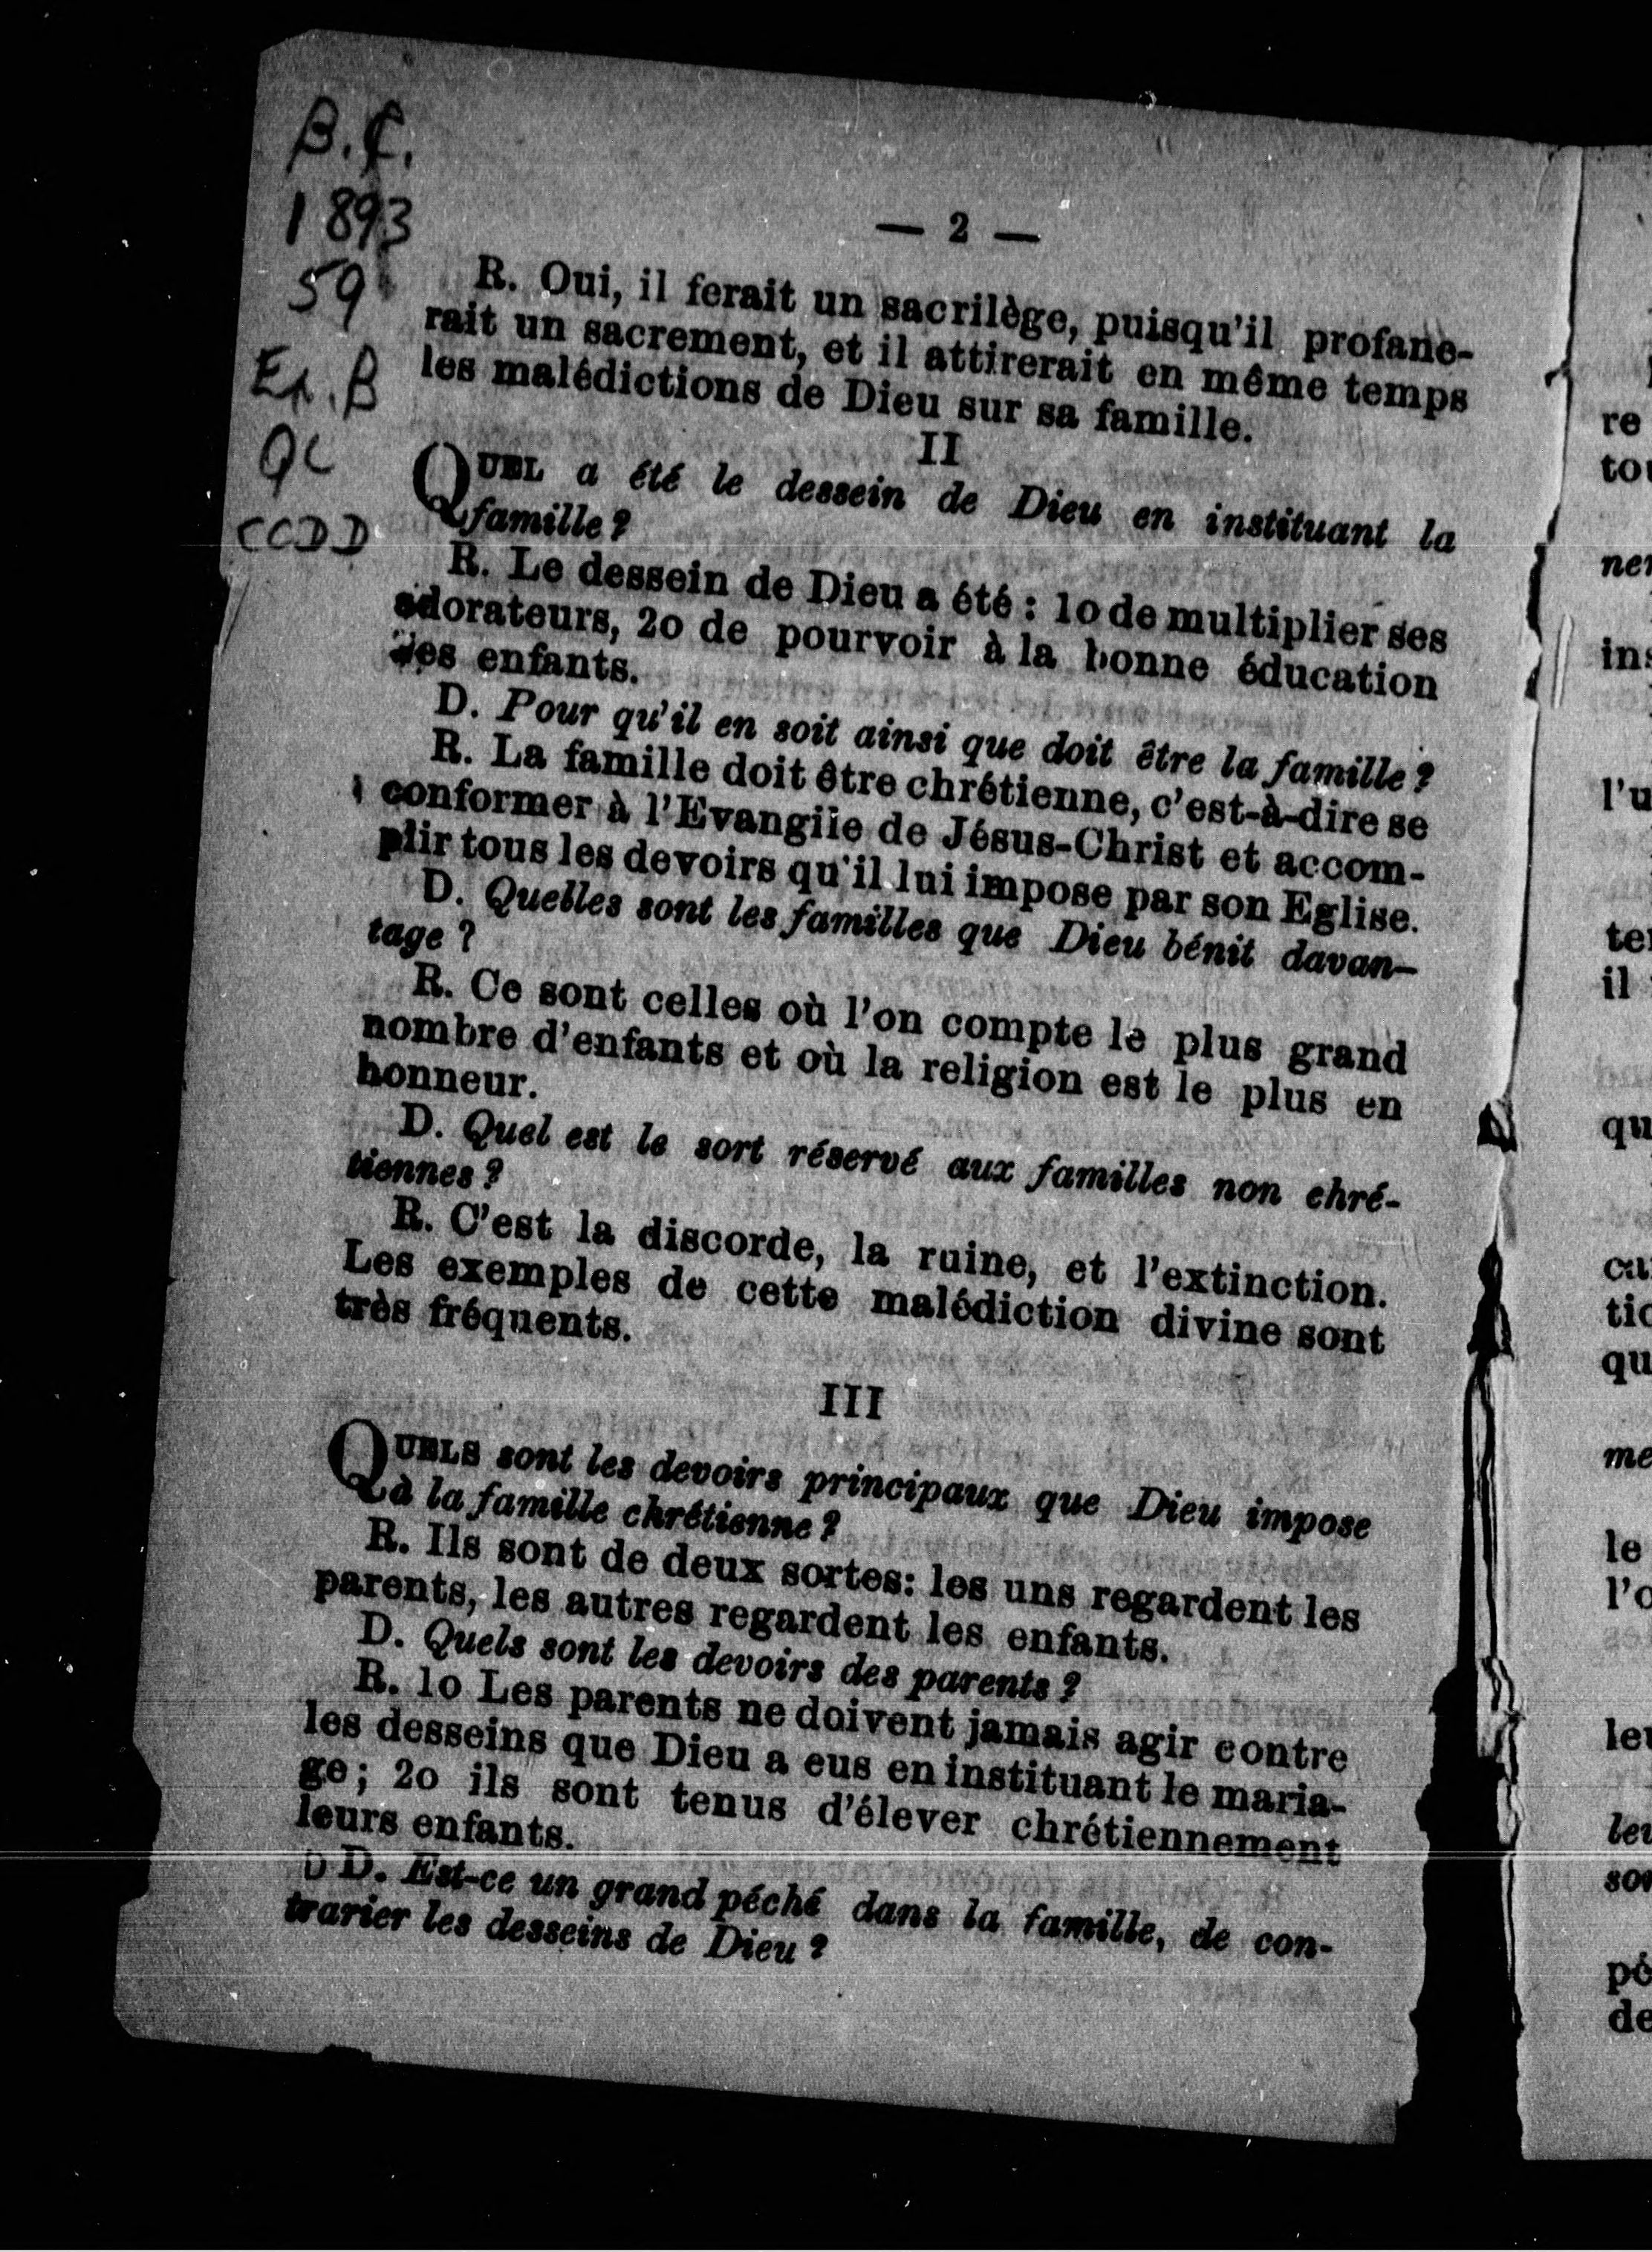 B.C.
1893
59
Ex. B
QC
CCDD
— 2 —
R. Oui, il ferait un sacrilège, puisqu'il profane-
rait un sacrement, et il attirerait en même temps
les malédictions de Dieu sur sa famille.
II
QUEL a été le dessein de Dieu en instituant la
famille ?
R. Le dessein de Dieu a été : 1o de multiplier ses
adorateurs, 2o de pourvoir à la bonne éducation
des enfants.
D. Pour qu'il en soit ainsi que doit être la famille ?
R. La famille doit être chrétienne, c'est-à-dire se
conformer à l'Evangile de Jésus-Christ et accom-
plir tous les devoirs qu'il lui impose par son Eglise.
D. Quelles sont les familles que Dieu bénit davan-
tage ?
R. Ce sont celles où l'on compte le plus grand
nombre d'enfants et où la religion est le plus en
honneur.
D. Quel est le sort réservé aux familles non chré-
tiennes ?
R. C'est la discorde, la ruine, et l'extinction.
Les exemples de cette malédiction divine sont
très fréquents.
III
QUELS sont les devoirs principaux que Dieu impose
à la famille chrétienne ?
R. Ils sont de deux sortes: les uns regardent les
parents, les autres regardent les enfants.
D. Quels sont les devoirs des parents ?
R. 1o Les parents ne doivent jamais agir contre
les desseins que Dieu a eus en instituant le maria-
ge ; 2o ils sont tenus d'élever chrétiennement
leurs enfants.
D. Est-ce un grand péché dans la famille, de con-
trarier les desseins de Dieu ?
re
ins
l'u
il
qu
qu
me
le
pé
de